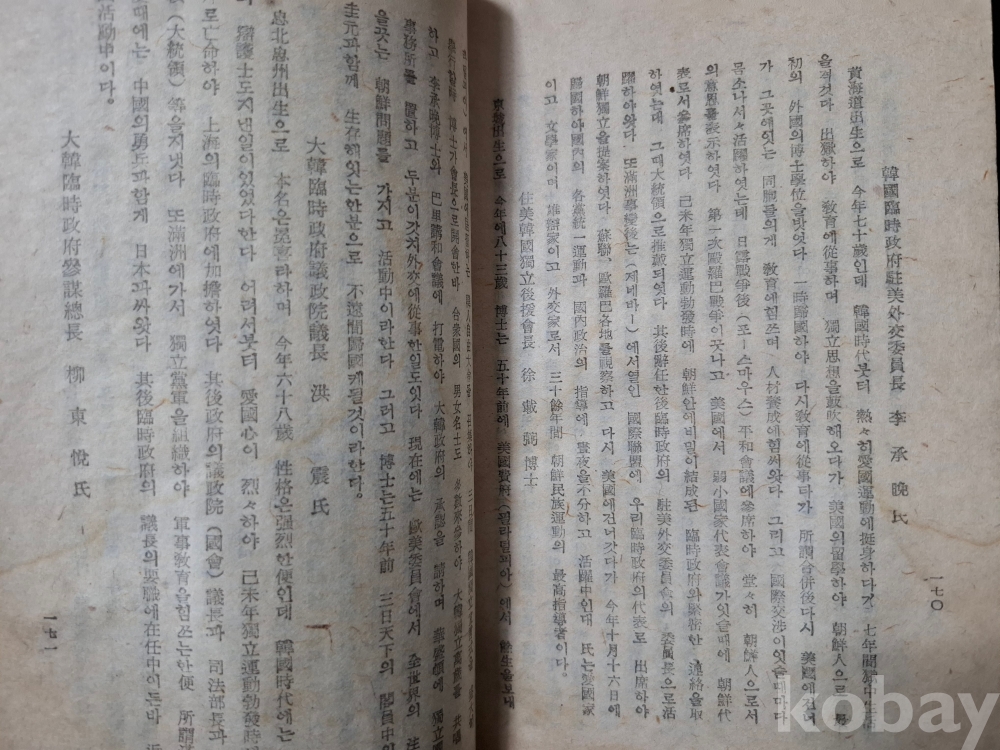 韓國臨時政府駐美外交委員長 李承晩氏
黃海道出生으로 今年七十歲인데 韓國時代부터 熱々히愛國運動에挺身하다가 七年間獄中生活
을격것다 出獄하야 敎育에從事하며 獨立思想을鼓吹해오다가 美國의留學하야 朝鮮人으로 最
初의 外國의博士學位을밧엇다 一時歸國하야 다시敎育에從事타가 所謂合併後다시 美國에건너
가 그곳에잇는 同胞들의게 敎育에힘쓰며 人材養成에힘써왓다 그리고 國際交涉이잇슬때마다
몸소나서々活躍하엿는데 日露戰爭後(포ー스마우스) 平和會議에參席하야 堂々히 朝鮮人으로서
의意思를表示하엿다 第一次歐羅巴戰爭이끗나고 美國에서 弱小國家代表會議가잇슬때에 朝鮮代
表로서參席하엿다 己未年獨立運動勃發時에 朝鮮안에비밀이結成된 臨時政府와緊密한 連絡을取
하엿는데 그때大統領으로推戴되엿다 其後辭任한後臨時政府의 駐美外交委員會의 委員長으로活
躍하야왓다 또滿洲事變後는 (제네바ー)에서열인 國際聯盟에 우리臨時政府의代表로 出席하야
朝鮮獨立을提案하엿다 蘇聯、歐羅巴各地를視察하고 다시 美國에건너갓다가 今年十月十六日에
歸國하야國內의 各黨統一運動과 國內政治의 指導에 晝夜를不分하고 活躍中인대 氏는愛國家
이고 文學家이며 雄辯家이고 外交家로서 三十餘年間 朝鮮民族運動의 最高指導者이다.
住美韓國獨立後援會長 徐載弼博士
出生으로 今年에八十三歲 博士는 五十年前에 美國費府(필라델피아)에서 餘生을보내
一七〇
博士가會長으로 合衆國의 男女名士도
하고 李承晩博士와 巴里講和會議에 打電하야 大韓政府의 承認을 請하며
事務所를 置하고 두분이갓치外交에從事한일도잇다 現在에는 歐美委員會에서 全世界의
을끗는 朝鮮問題를 가지고 活動中이라한다 그러고 博士는五十年前 三日天下의 閣員中
圭元과함께 生存해잇는한분으로 不遠間歸國케될것이라한다.
大韓臨時政府議政院議長 洪震氏
忠北忠州出生으로 本名은冕喜라하며 今年六十八歲 性格은强烈한便인데 韓國時代에는
辯護士도지낸일이있었다한다 어려서부터 愛國心이 烈々하야 己未年獨立運動勃發時
로亡命하야 上海의臨時政府에加擔하엿다 其後政府의議政院(國會)議長과 司法部長과
(大統領)等을지냇다 또滿洲에가서 獨立黨軍을組織하야 軍事敎育을힘쓰는한便 所謂
때에는 中國의勇兵과함게 日本과싸왓다 其後臨時政府의 議長의要職에在任中이든바
活動中이다.
大韓臨時政府參謀總長 柳東悅氏
一七一
kobay